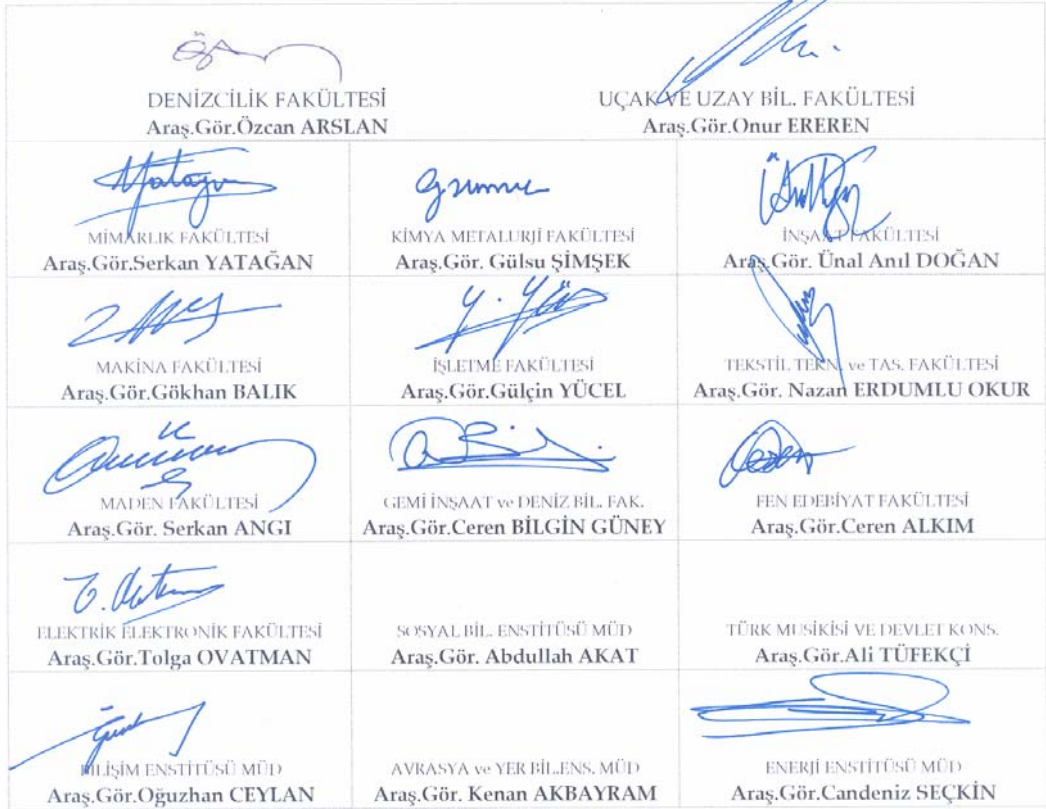 DENİZCİLİK FAKÜLTESİ
Araş.Gör.Özcan ARSLAN
UÇAK VE UZAY BİL. FAKÜLTESİ
Araş.Gör.Onur EREREN
MİMARLIK FAKÜLTESİ
Araş.Gör.Serkan YATAĞAN
KİMYA METALURJİ FAKÜLTESİ
Araş.Gör. Gülsu ŞİMŞEK
İNŞAAT FAKÜLTESİ
Araş.Gör. Ünal Anıl DOĞAN
MAKİNA FAKÜLTESİ
Araş.Gör.Gökhan BALIK
İŞLETME FAKÜLTESİ
Y. Yüc
Araş.Gör.Gülçin YÜCEL
TEKSTİL TEKN. ve TAS. FAKÜLTESİ
Araş.Gör. Nazan ERDUMLU OKUR
MADEN FAKÜLTESİ
Araş.Gör. Serkan ANGI
GEMİ İNŞAAT ve DENİZ BİL. FAK.
Araş.Gör.Ceren BİLGİN GÜNEY
FEN EDEBİYAT FAKÜLTESİ
Araş.Gör.Ceren ALKIM
ELEKTRİK ELEKTRONİK FAKÜLTESİ
Araş.Gör.Tolga OVATMAN
SOSYAL BİL. ENSTİTÜSÜ MÜD
Araş.Gör. Abdullah AKAT
TÜRK MUSİKİSİ VE DEVLET KONS.
Araş.Gör.Ali TÜFEKÇİ
BİLİŞİM ENSTİTÜSÜ MÜD
Araş.Gör.Oğuzhan CEYLAN
AVRASYA ve YER BİL.ENS. MÜD
Araş.Gör. Kenan AKBAYRAM
ENERJİ ENSTİTÜSÜ MÜD
Araş.Gör.Candeniz SEÇKİN